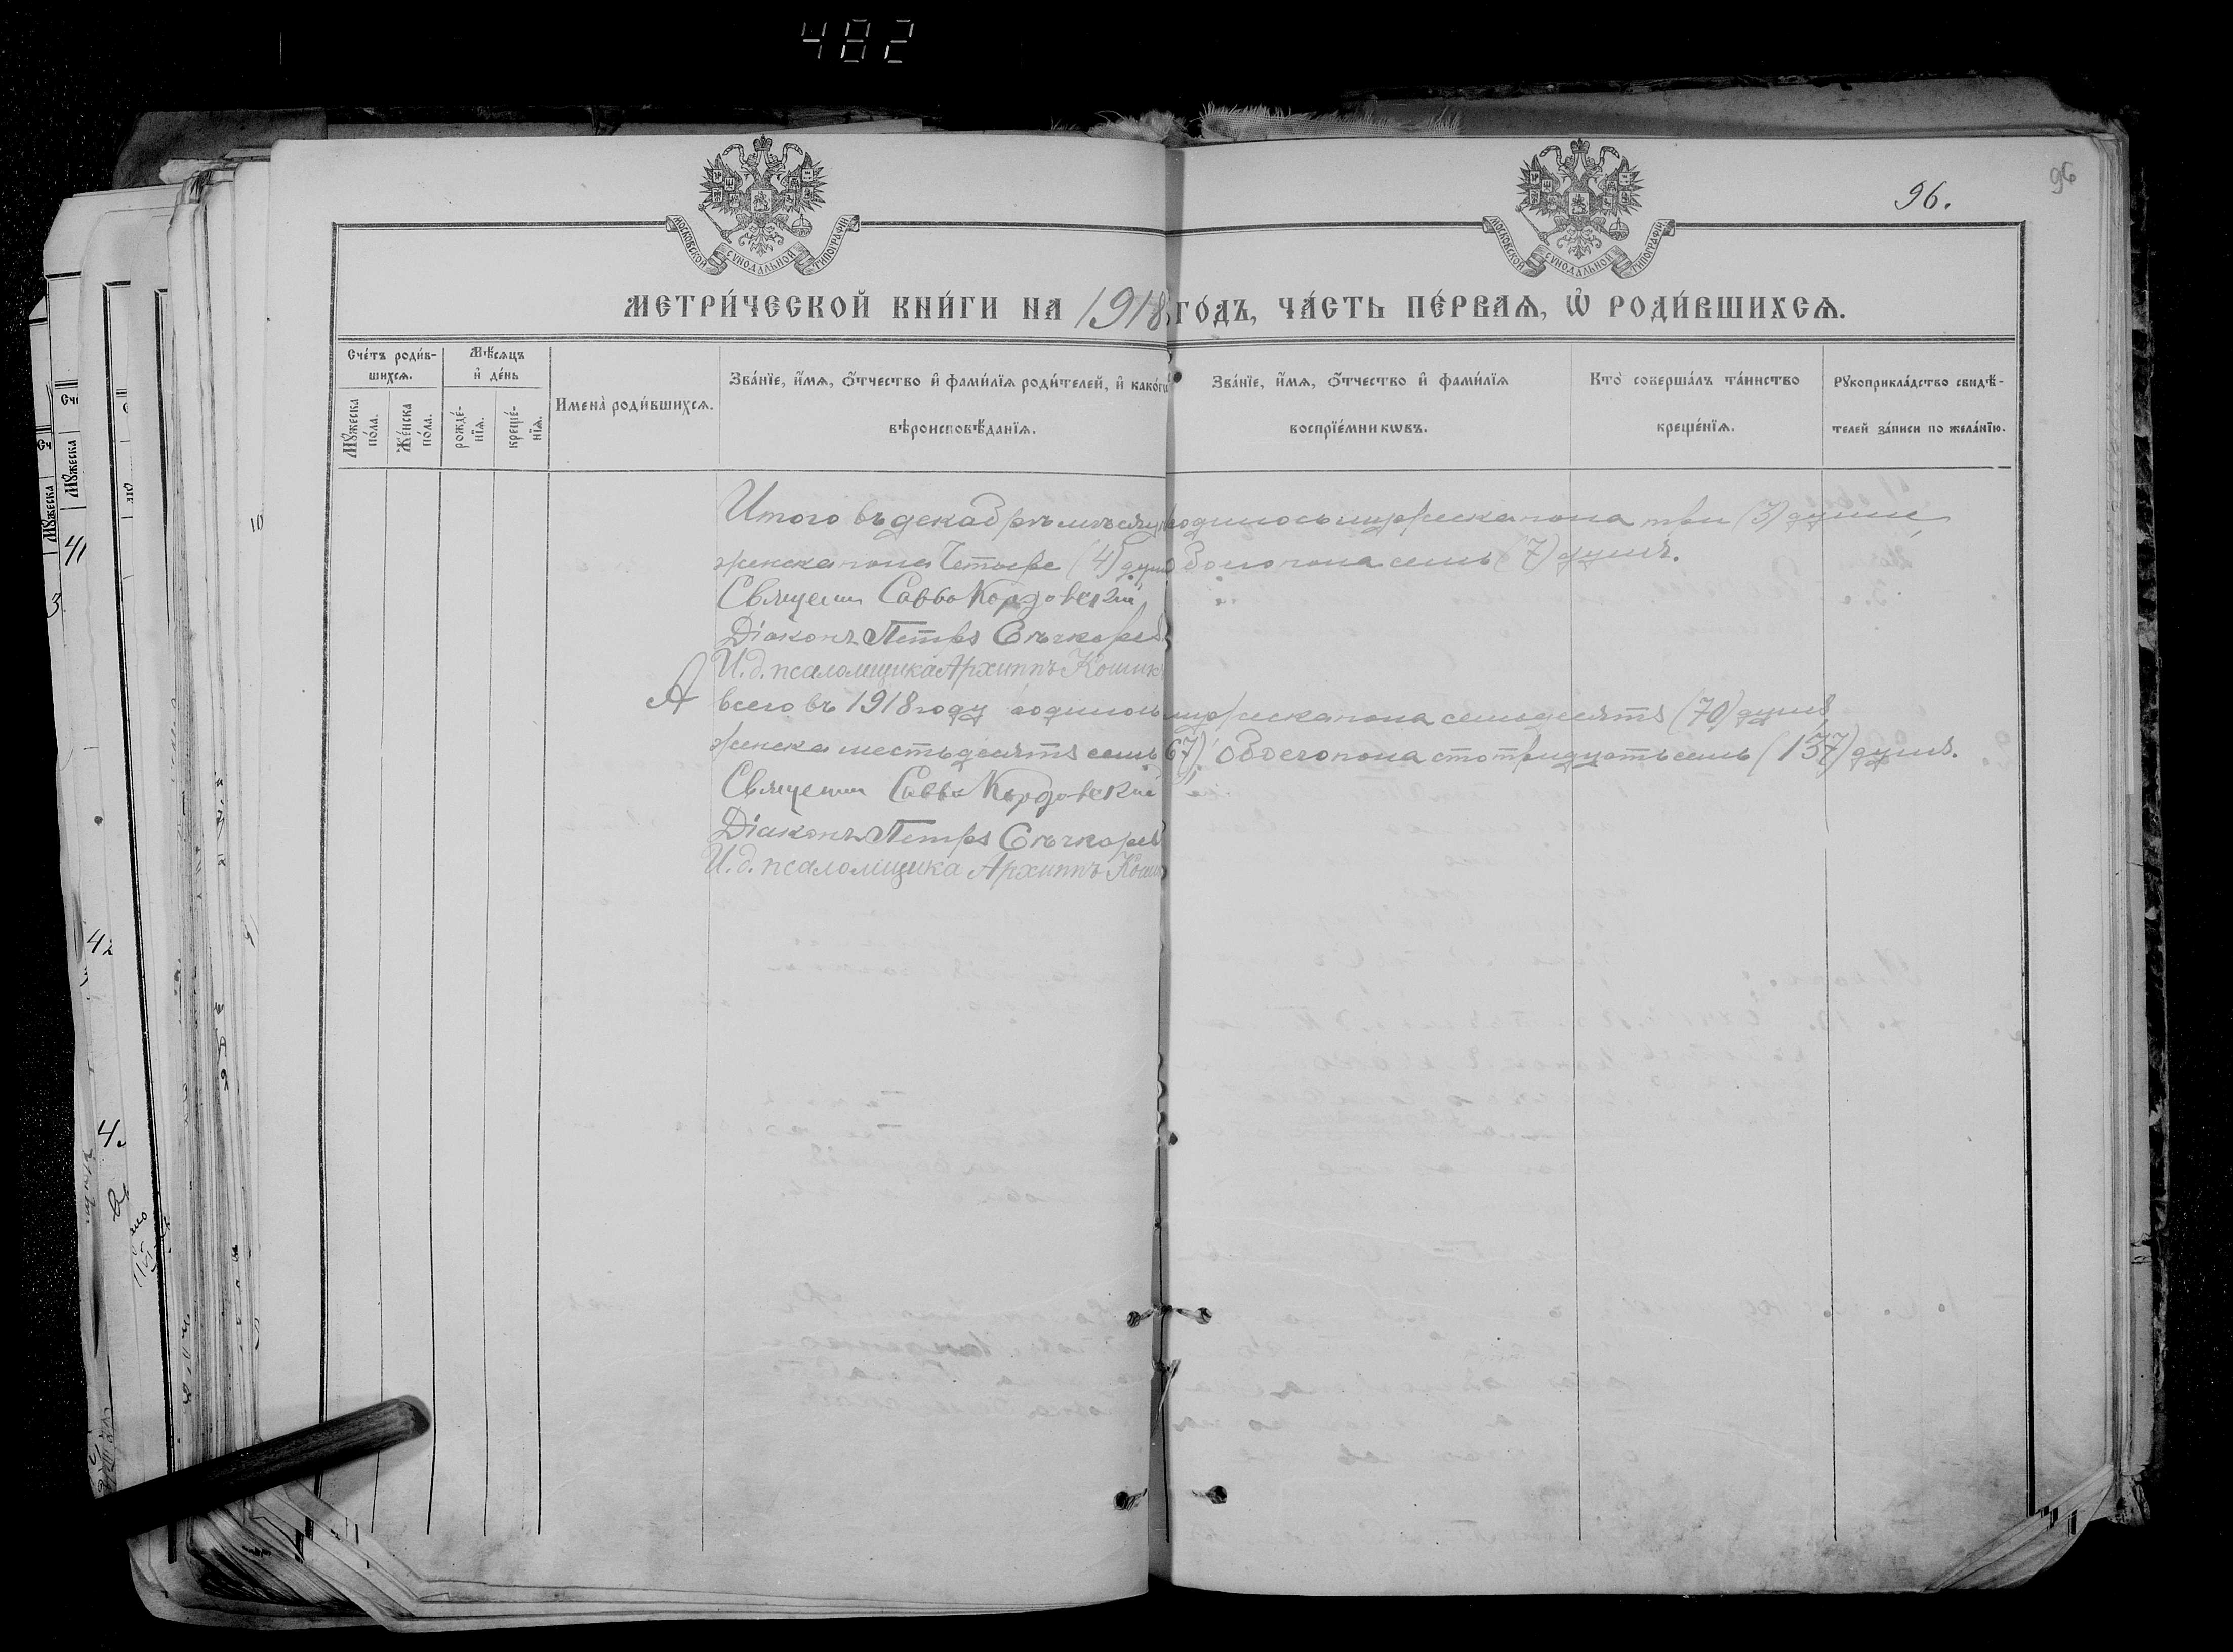 482
96
96.
МОСКОВСКОЙ СѴНОДАЛЬНОЙ ТИПОГРАФІИ
МОСКОВСКОЙ СѴНОДАЛЬНОЙ ТИПОГРАФІИ
МЕТРИ́ЧЕСКОЙ КНИ́ГИ НА 1918 ГО́ДЪ, ЧА́СТЬ ПЕ́РВАѦ, Ѡ҆ РОДИ́ВШИХСѦ.
Сче́тъ роди́в-
шихсѧ.
Мꙋ́жеска по́ла.
Же́нска по́ла.
Мѣ́сѧцъ
и҆ де́нь
рожде́-
нїѧ.
креще́-
нїѧ.
Имена̀ роди́вшихсѧ.
Зва́нїе, и҆́мѧ, ѻ҆́тчество и҆ фами́лїѧ роди́телей, и҆ како́гѡ
вѣроисповѣ́данїѧ.
Зва́нїе, и҆́мѧ, ѻ҆́тчество и҆ фами́лїѧ
воспрїе́мникѡвъ.
Кто̀ соверша́лъ та́инство
креще́нїѧ.
Рꙋкоприкла́дство свидѣ́-
телей за́писи по жела́нїю.
Итого въ декабрѣ мѣсяцѣ родилось мужеска пола три (3) души
женска пола Четыре (4) душ обоего пола семь (7) душъ.
Священн Савва Кордовскій
Діаконъ Петръ Сѣчкарев
И.д. псаломщика Архиппъ Кошик
А всего въ 1918 году родилось мужеска пола семьдесятъ (70) душъ
женска шестьдесятъ семь (67). Обоего пола сто тридцать семь (137) душъ.
Священн Савва Кордовскій
Діаконъ Петръ Сѣчкарев
И.д. псаломщика Архиппъ Коши
41
3
42
4.
10